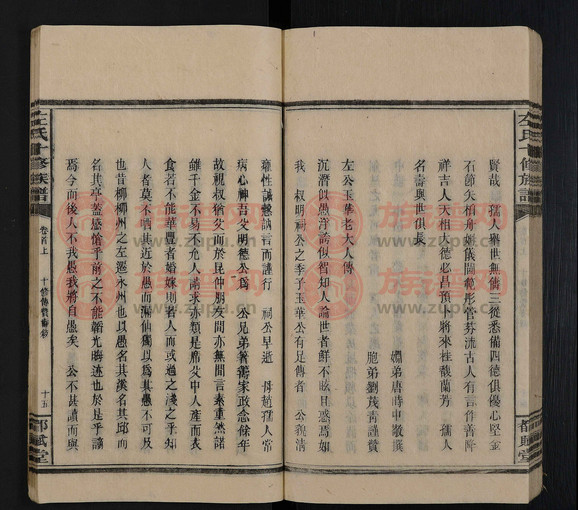 賢哉 孺人舉世無儔三從悉備四德俱優心堅金
石節矢柏舟雖儀閫範彤管芬流古人有言作善降
祥吉人天相大德必昌預卜將來桂馥蘭芳 孺人
名壽與世俱長
嫻弟唐時中敬撰
胞弟劉茂青謹贊
左公玉華老大人傳
我 叔明祠公之季子玉華公有足傳者 公貌清
沉潛似愚浮譎似智知人論世者鮮不眩目惑焉如
雍性誠慤謹言而謹行 祠公早逝 母趙孺人常
病心神吾父明德公為 公兄弟籌家政念餘年
故視叔猶父而於昆仲朋友間亦無間言素重然諾
雖千金不易不允人請求亦類是席父中人產而衣
食若不能華豐者婚嫁則者人而或過之淺之乎知
人者莫不哂其近於愚而漏仙獨以為其愚不可及
也昔柳柳州之左遷永州也以愚名其溪名其邱而
名其亭蓋感憤乎前之不能韜光晦迹也於是乎謫
焉今而後人不我愚我將自愚矣 公不甚讀而與
左氏十修族譜
卷首上
十五
都賦堂
左氏十修族譜
都賦堂
族谱网
www.zupu.cn